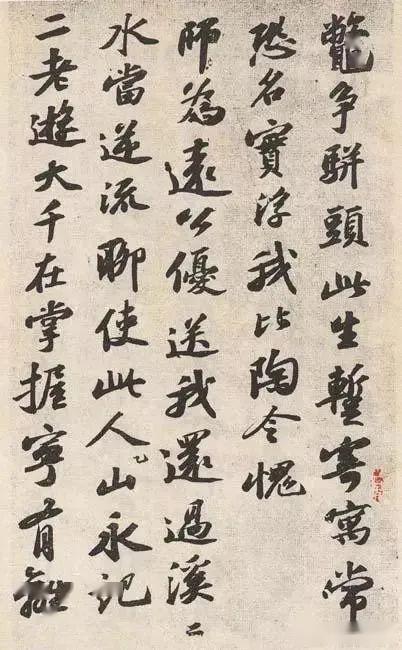 鼈争駢頭此生蹔寄寓常
恐名實浮我比陶令愧
師為遠公優送我還過溪〻
水當逆流聊使此人山永記
二老遊大千在掌握寧有離